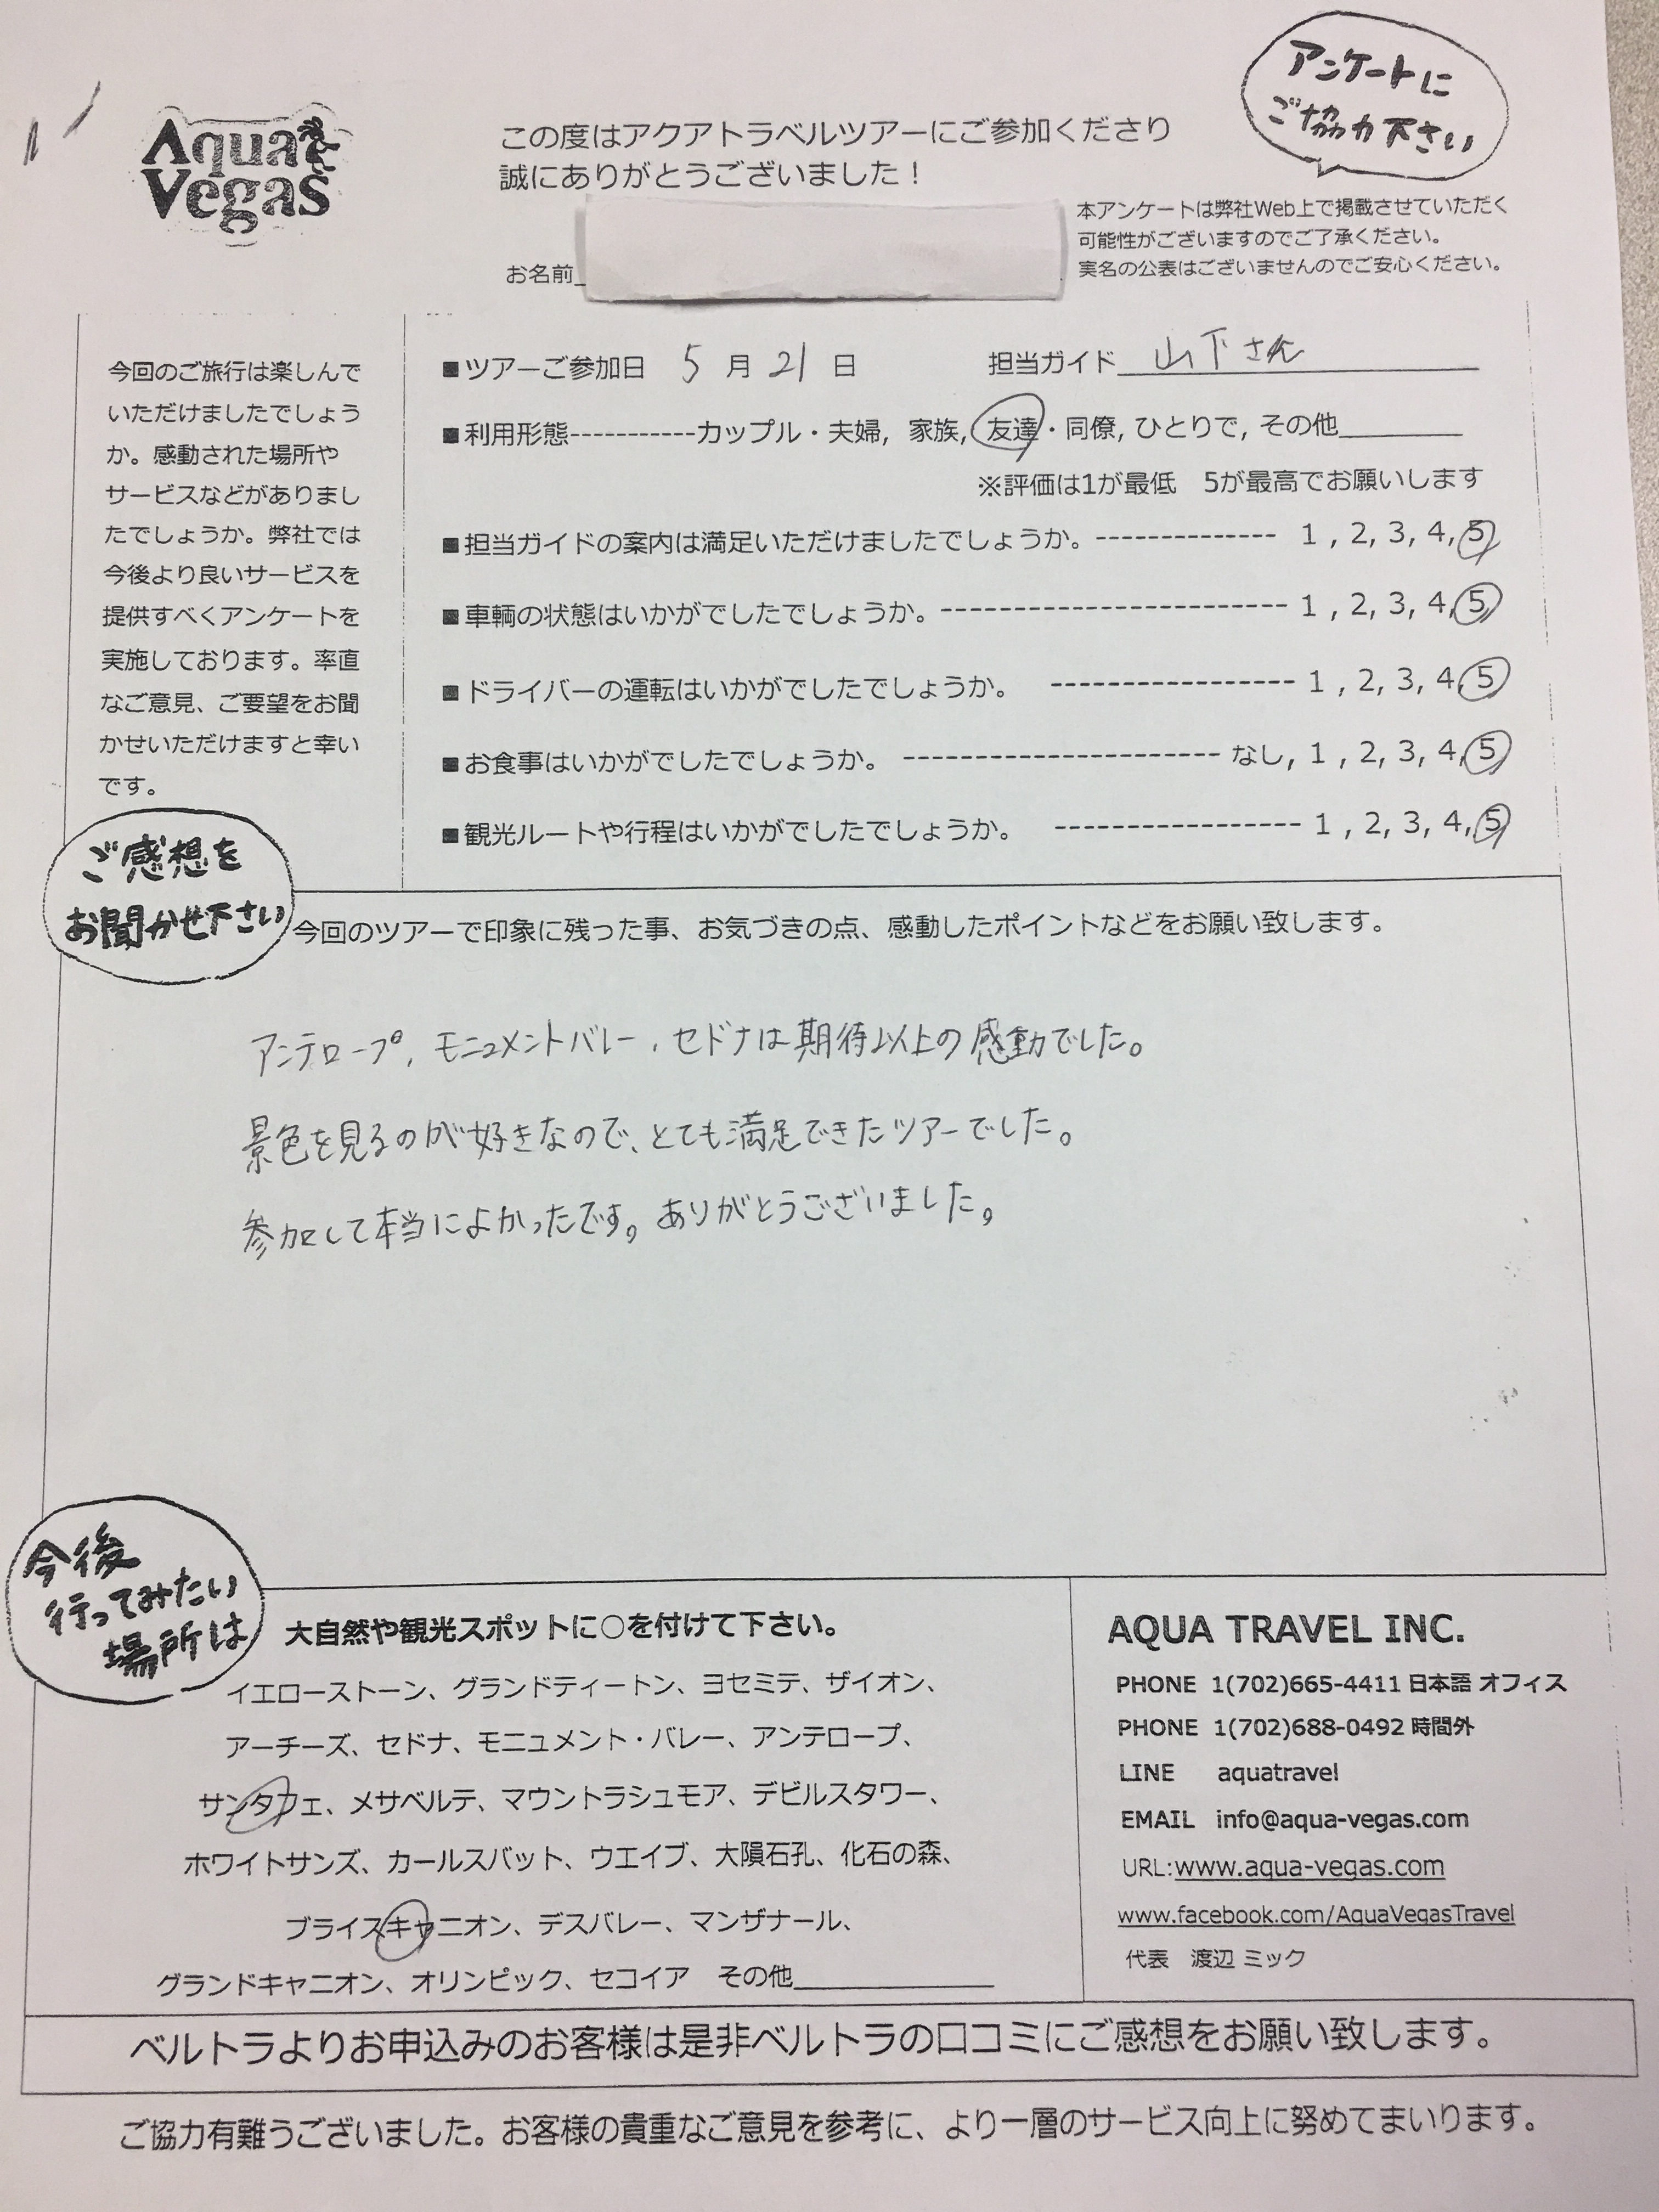 Aqua
Vegas
この度はアクアトラベルツアーにご参加くださり
誠にありがとうございました！
アンケートに
ご協力下さい
本アンケートは弊社Web上で掲載させていただく
可能性がございますのでご了承ください。
実名の公表はございませんのでご安心ください。
お名前
今回のご旅行は楽しんで
いただけましたでしょう
か。感動された場所や
サービスなどがありまし
たでしょうか。弊社では
今後より良いサービスを
提供すべくアンケートを
実施しております。率直
なご意見、ご要望をお聞
かせいただけますと幸い
です。
■ツアーご参加日 5 月 21 日 担当ガイド 山下さん
■利用形態-----------カップル・夫婦, 家族, 友達・同僚, ひとりで, その他
※評価は1が最低 5が最高でお願いします
■担当ガイドの案内は満足いただけましたでしょうか。------------- 1 , 2, 3, 4, 5
■車輌の状態はいかがでしたでしょうか。------------------------ 1 , 2, 3, 4, 5
■ドライバーの運転はいかがでしたでしょうか。 ----------------- 1 , 2, 3, 4, 5
■お食事はいかがでしたでしょうか。 ---------------------- なし, 1 , 2, 3, 4, 5
■観光ルートや行程はいかがでしたでしょうか。 ----------------- 1 , 2, 3, 4, 5
ご感想を
お聞かせ下さい
今回のツアーで印象に残った事、お気づきの点、感動したポイントなどをお願い致します。
アンテロープ, モニュメントバレー, セドナは期待以上の感動でした。
景色を見るのが好きなので、とても満足できたツアーでした。
参加して本当によかったです。ありがとうございました。
今後
行ってみたい
場所は
大自然や観光スポットに○を付けて下さい。
イエローストーン、グランドティートン、ヨセミテ、ザイオン、
アーチーズ、セドナ、モニュメント・バレー、アンテロープ、
サンタフェ、メサベルテ、マウントラシュモア、デビルスタワー、
ホワイトサンズ、カールスバット、ウエイブ、大隕石孔、化石の森、
ブライスキャニオン、デスバレー、マンザナール、
グランドキャニオン、オリンピック、セコイア その他
AQUA TRAVEL INC.
PHONE 1(702)665-4411 日本語 オフィス
PHONE 1(702)688-0492 時間外
LINE aquatravel
EMAIL info@aqua-vegas.com
URL:www.aqua-vegas.com
www.facebook.com/AquaVegasTravel
代表 渡辺 ミック
ベルトラよりお申込みのお客様は是非ベルトラの口コミにご感想をお願い致します。
ご協力有難うございました。お客様の貴重なご意見を参考に、より一層のサービス向上に努めてまいります。